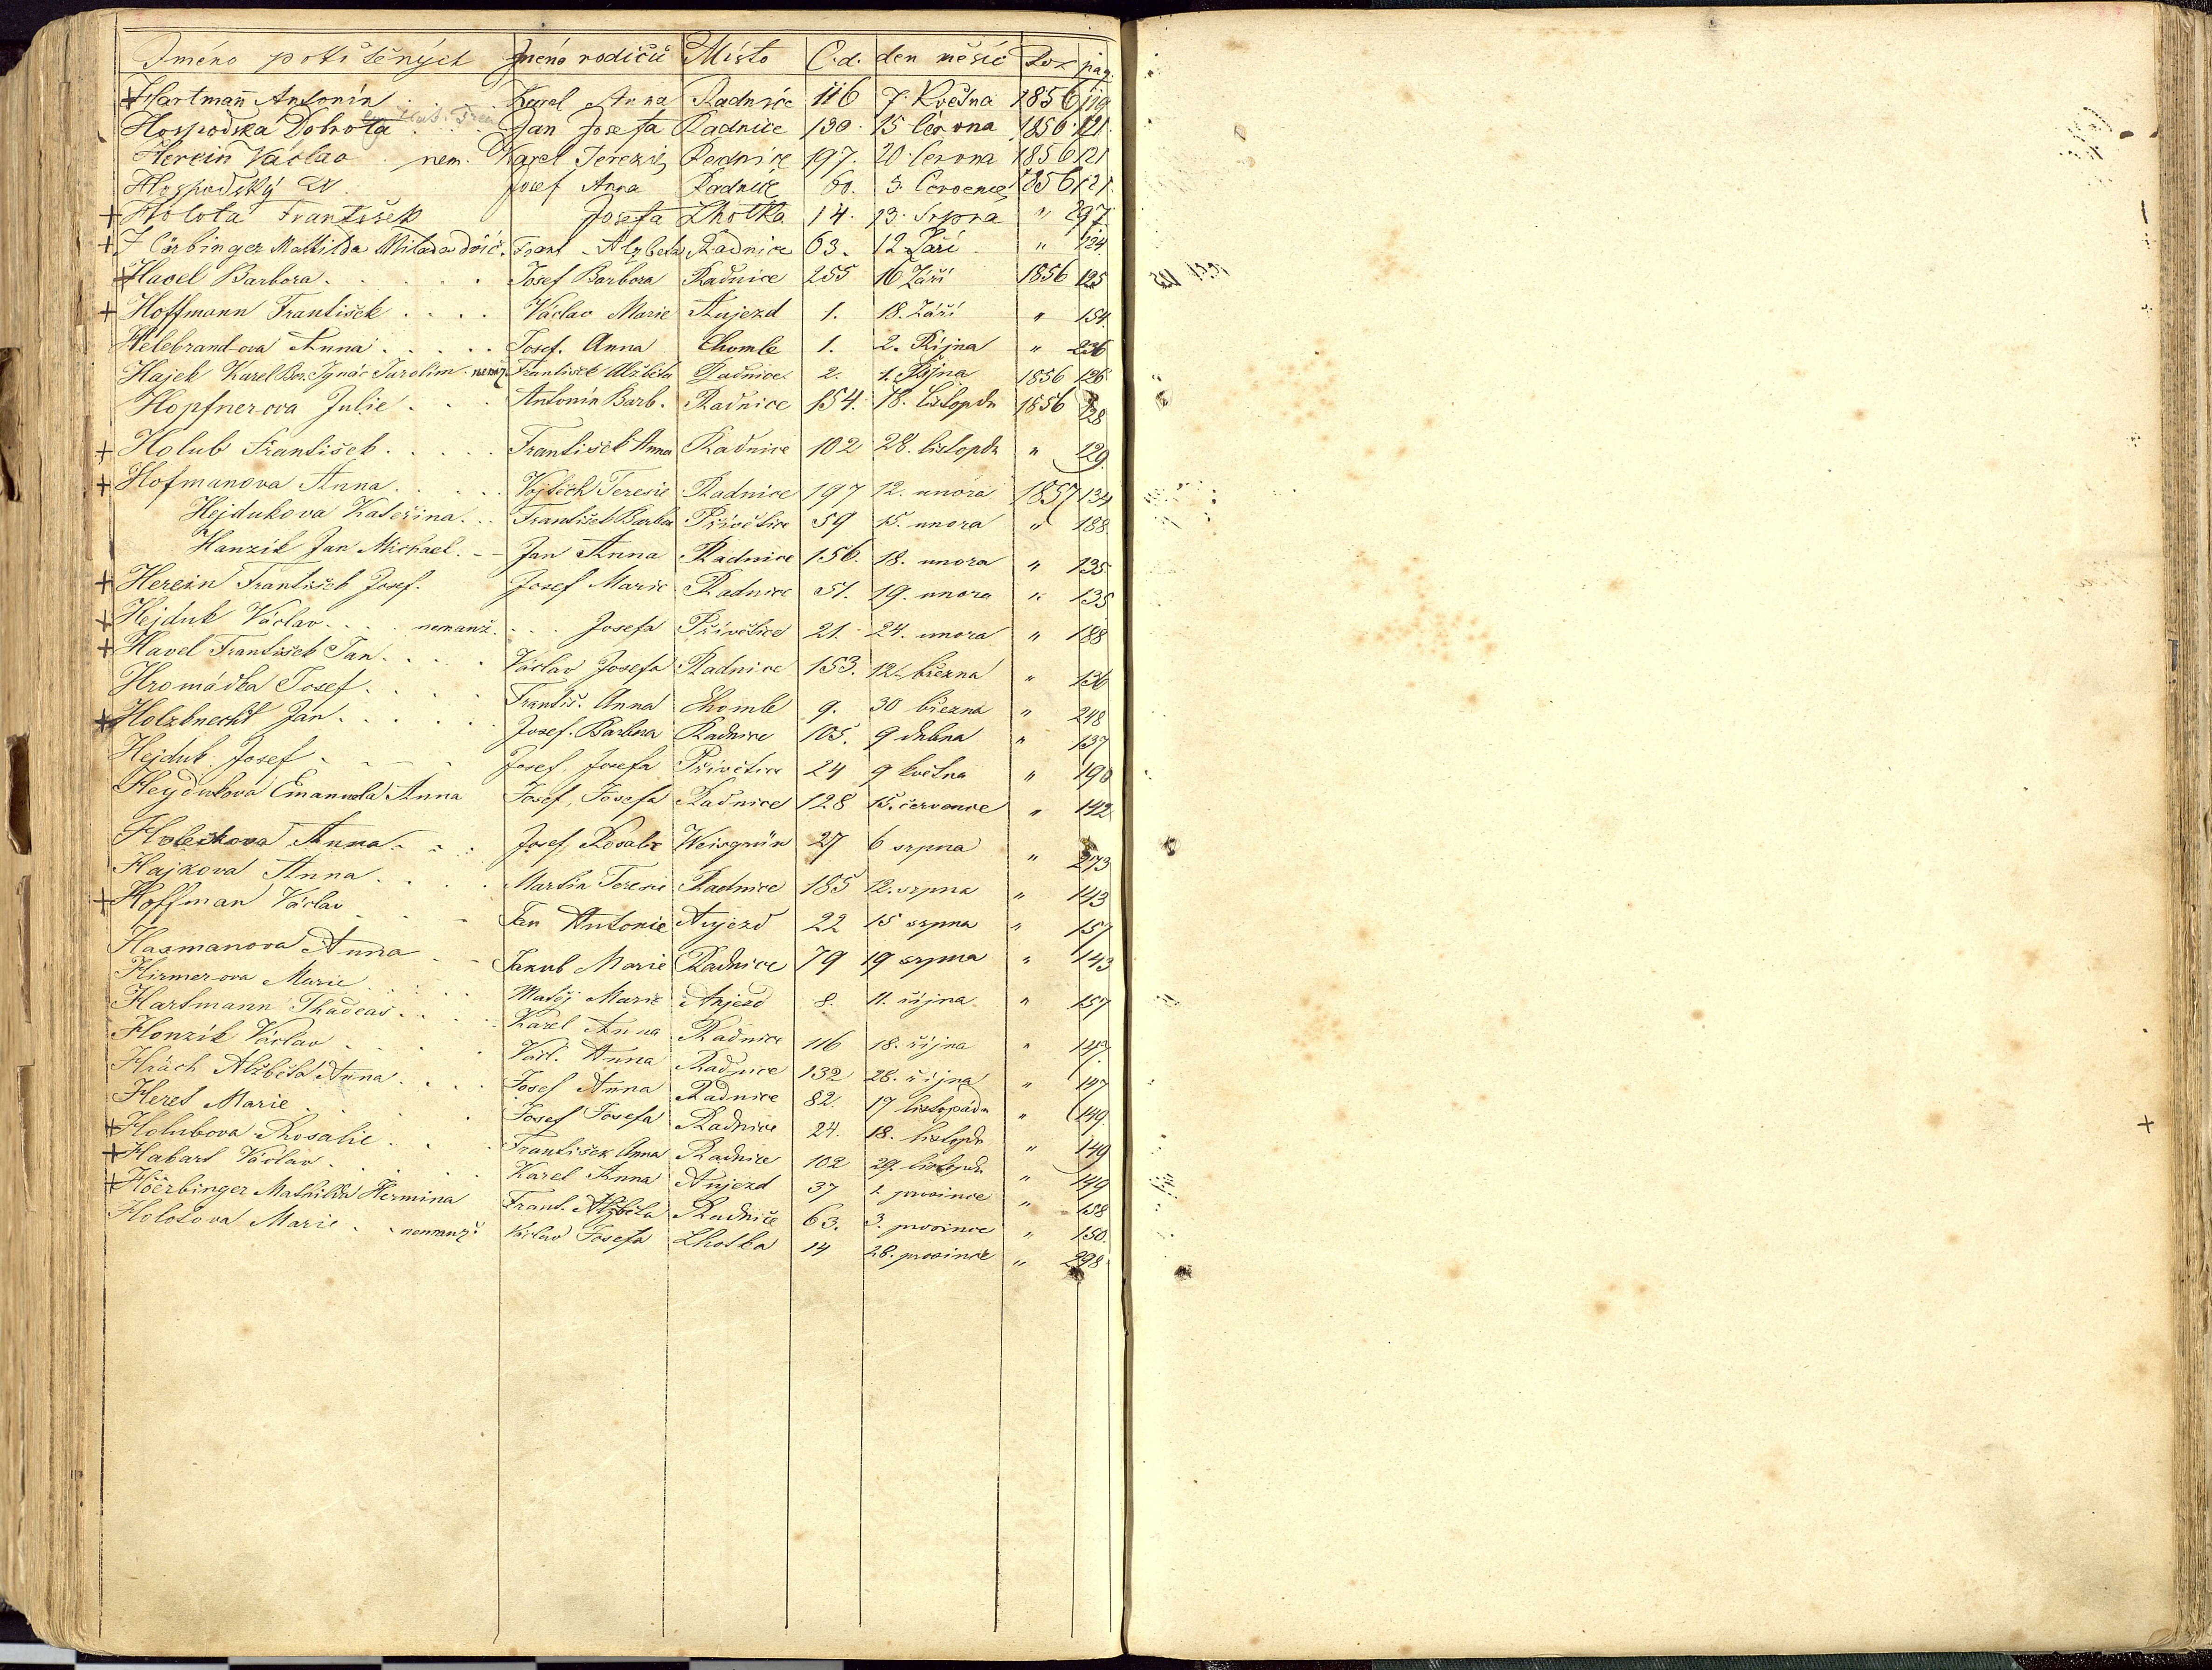 Jméno pokřtěných Jméno rodičů Místo C.d. den měsíc Rok pag.
+ Hartman̄ Antonín Karel Anna Radnice 116 7. Května 1856 119
Hospodska Dobrota Jan Josefa Radnice 130. 15 Června 1856. 121
Hercin Václav nem. Karel Terezie Radnice 197. 20 Června 1856 121
Hospodský Josef Anna Radnice 60. 3. Července 1856 121
+ Holota František Josefa Lhotka 14. 13. Srpna " 297
+ Hörbinger Mathilda Milada Frant Alzbeta Radnice 63. 12 Září " 124
+ Havel Barbora. Josef Barbora Radnice 255 16 Září 1856 125
+ Hoffmann František Václav Marie Aujezd 1. 18. Září " 154.
Helebrand-ova Anna Josef. Anna Chomle 1. 2. Října " 236
Hajek Karel Bor. Ignác Jarolim. nemž. František Alžběta Radnice 2. 1. Října 1856 126
Hopfner-ova Julie Antonín Barb. Radnice 154. 18. listopdu 1856 128
+ Holub František František Anna Radnice 102 28. listopdu " 129
+ Hofmanova Anna. Vojtěch Teresie Radnice 197 12. unora 1857 134
Hejdukova Kateřina. František Barbora Přívětice 59 15. unora " 188
Hanzík Jan Michael. Jan Anna Radnice 156. 18. unora " 135
+ Hercin František Josef. Josef Marie Radnice 51. 19. unora " 135
+ Hejduk Václav nemanž. Josefa Přívětice 21. 24. unora " 188
+ Havel František Jan. Václav Josefa Radnice 153. 12. března " 136
Hromádka Josef. Františ. Anna Chomle 9. 30 března " 248
+ Holzknecht Jan. Josef. Barbora Radnice 105. 9 dubna " 137
Hejduk Josef Josef, Josefa Přívětice 24 9 května " 190
Heydukova Emanuela Anna Josef, Josefa Radnice 128 15. července " 142
Holeckova Anna Josef, Rosalie Weisgrün 27 6 srpna " 273
Hajkova Anna. Martin Teresie Radnice 185 12. srpna " 143
+ Hoffman Václav Jan Antonie Aujezd 22 15 srpna " 157
Hasmanova Anna Jakub Marie Radnice 79 19 srpna " 143
Hirmer-ova Marie Matěj Marie Aujezd 8. 11. října " 157
Hartmann Thadeas. Karel Anna Radnice 116 18. října " 147
Honzík Václav Václ. Anna Radnice 132 28. října " 147
Hrách Alžběta Anna. Josef Anna Radnice 82. 17 listopadu " 149
Heret Marie Josef Josefa Radnice 24. 18. listopdu " 149
+ Holubova Rosalie František Anna Radnice 102 29. listopdu " 149
+ Habart Václav. Karel Anna Aujezd 37 1. prosince " 158
+ Höerbinger Mathilda Hermina Frant. Alžběta Radnice 63. 3. prosince " 150.
Holotova Marie nemanž. Václav Josefa Lhotka 14 28. prosince " 298